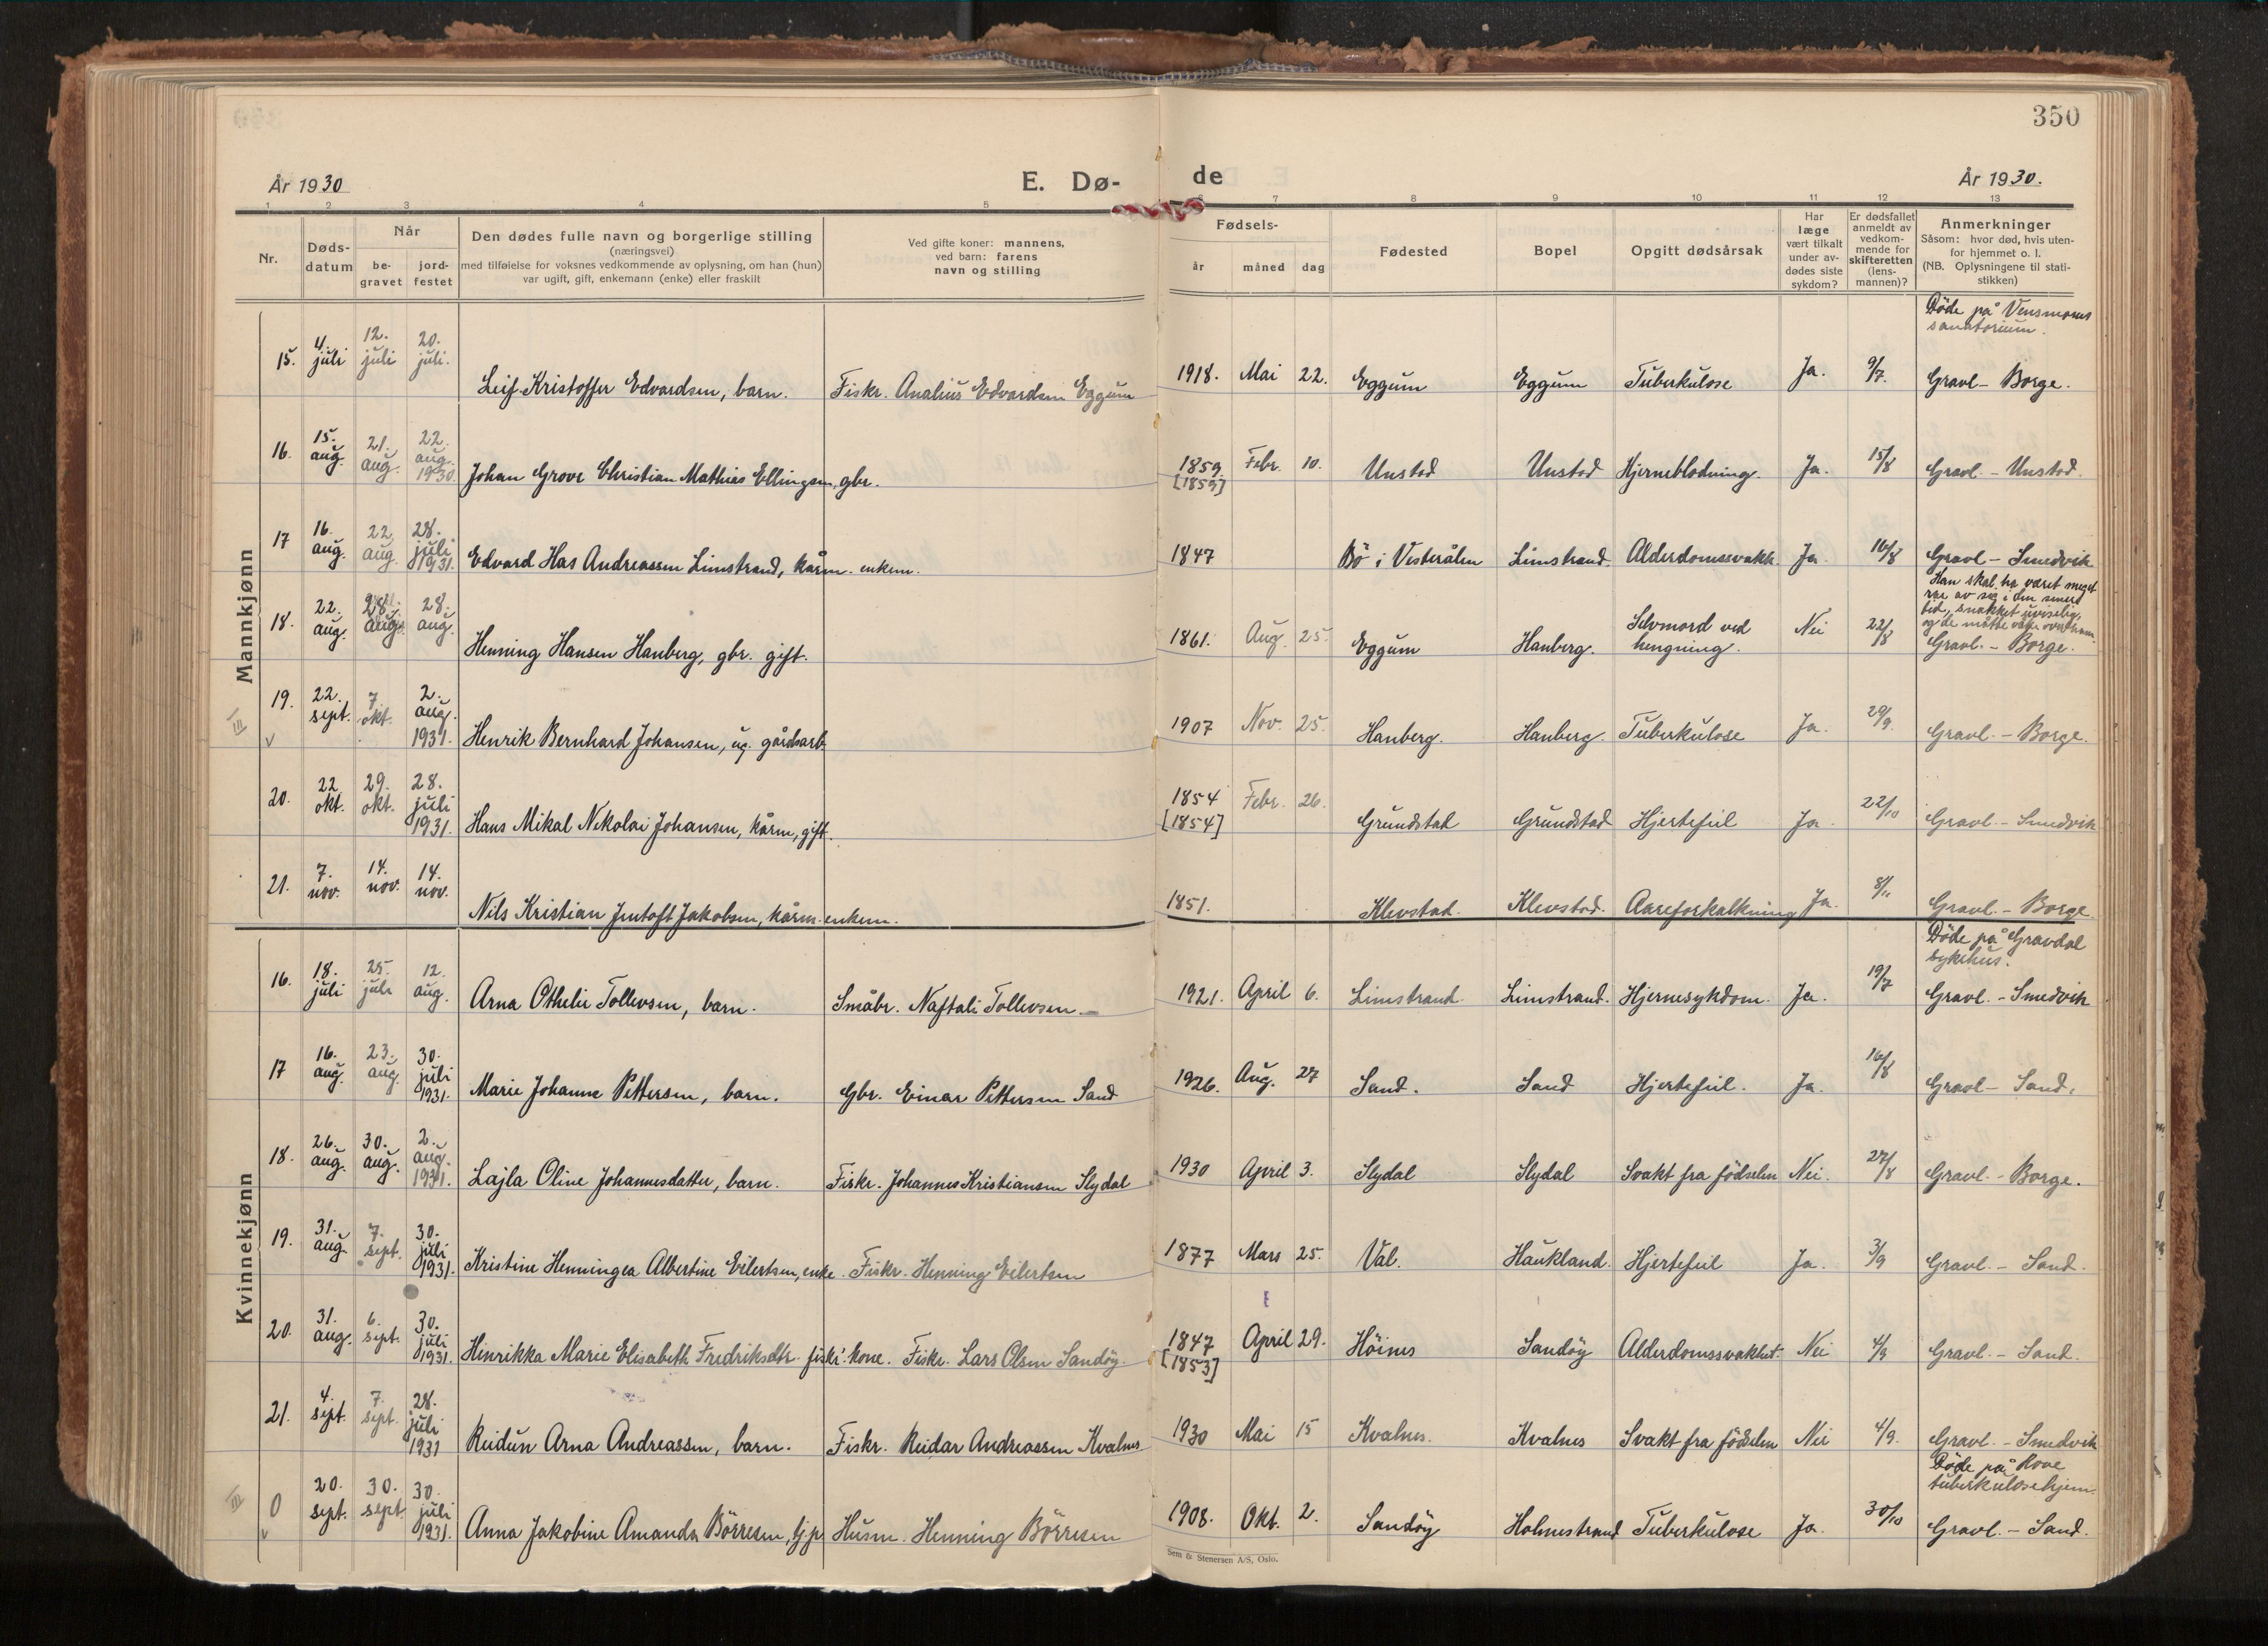 350
År 1930
E. Dø-
de
År 1930.
1 2 3 4 5 6 7 8 9 10 11 12 13
Nr.
Døds-
datum
Når
be-
gravet
jord-
festet
Den dødes fulle navn og borgerlige stilling
(næringsvei)
med tilføielse for voksnes vedkommende av oplysning, om han (hun)
var ugift, gift, enkemann (enke) eller fraskilt
Ved gifte koner: mannens,
ved barn: farens
navn og stilling
Fødsels-
år måned dag
Fødested
Bopel
Opgitt dødsårsak
Har
læge
vært tilkalt
under av-
dødes siste
sykdom?
Er dødsfallet
anmeldt av
vedkom-
mende for
skifteretten
(lens-
mannen)?
Anmerkninger
Såsom: hvor død, hvis uten-
for hjemmet o. l.
(NB. Oplysningene til stati-
stikken)
Mannkjønn
Døde på Vensmoens
sanatorium.
15. 4. juli 12. juli 20. juli. Leif Kristoffer Edvardsen, barn. Fiskr. Analius Edvardsen Eggum 1918. Mai 22. Eggum Eggum Tuberkulose Ja. 9/7. Gravl. - Borge.
16. 15. aug. 21. aug. 22. aug. 1930. Johan Grove Christian Mathias Ellingsen, gbr. 1859. [1859] Febr. 10. Unstad Unstad Hjerneblødning. Ja. 15/8 Gravl. - Unstad.
17 16. aug. 22. aug. 28. juli 1931. Edvard Has Andreassen Limstrand, kårm. enkem. 1847 Bö i Vesterålen Limstrand Alderdomssvakh. Ja 16/8 Gravl - Smedvik
Han skal ha været meget
rar av sig i den senere
tid, snakket uviselig,
og de måtte våke over ham.
18. 22. aug. 28. aug. 28. aug. Henning Hansen Hanberg, gbr. gift. 1861. Aug. 25. Eggum Hanberg. Selvmord ved hengning. Nei 22/8 Gravl. - Borge.
III
19. 22. sept. 7. okt. 2. aug. 1931. Henrik Bernhard Johansen, ug. gårdsarb. 1907 Nov. 25. Hanberg. Hanberg. Tuberkulose Ja. 29/9. Gravl. - Borge.
20. 22. okt. 29. okt. 28. juli 1931. Hans Mikal Nikolai Johansen, kårm, gift. 1854 [1854] Febr. 26. Grundstad Grundstad Hjertefeil Ja 22/10 Gravl. - Smedvik
21. 7. nov. 14. nov. 14. nov. Nils Kristian Jentoft Jakobsen, kårm. enkem. 1851. Klevstad. Klevstad. Aareforkalkning Ja. 8/11 Gravl. - Borge.
Kvinnekjønn
Døde på Gravdal
sykehus.
16. 18. juli 25. juli 12. aug. Arna Othelie Tollevsen, barn. Småbr. Naftali Tollevsen. 1921. April 6. Limstrand. Limstrand. Hjernesykdom. Ja. 19/7 Gravl. - Smedvik
17 16. aug. 23. aug. 30. juli 1931. Marie Johanne Pettersen, barn. Gbr. Einar Pettersen Sand 1926. Aug. 27 Sand. Sand Hjertefeil. Ja. 16/8 Gravl - Sand.
18. 26. aug. 30. aug. 2. aug. 1931. Lajla Oline Johannesdatter, barn. Fiskr. Johannes Kristiansen Slydal 1930 April 3. Slydal Slydal Svakt fra fødselen Nei. 27/8 Gravl. - Borge.
19. 31. aug. 7. sept. 30. juli 1931. Kristine Henningea Albertine Eilertsen, enke. Fiskr. Henning Eilertsen 1877 Mars 25. Val. Haukland. Hjertefeil Ja. 3/9 Gravl. - Sand.
20. 31. aug. 6. sept. 30. juli 1931. Henrikka Marie Elisabeth Fredriksdtr. fiskr. kone. Fiskr. Lars Olsen Sandöy. 1847 [1853] April 29. Höines Sandöy Alderdomssvakhet. Nei 4/9 Gravl. - Sand.
21. 4. sept. 7. sept. 28. juli 1931 Reidun Arna Andreassen, barn. Fiskr. Reidar Andreassen Kvalnes 1930 Mai 15 Kvalnes. Kvalnes Svakt fra fødselen Nei 4/9. Gravl. - Smedvik
Døde på Rove
tuberkulosehjem.
III
0 20. sept. 30. sept. 30. juli 1931. Anna Jakobine Amanda Börresen, tj.p. Husm. Henning Börresen 1908. Okt. 2. Sandöy Holmestrand Tuberkulose Ja. 30/10 Gravl. - Sand.
Sem & Stenersen A/S, Oslo.